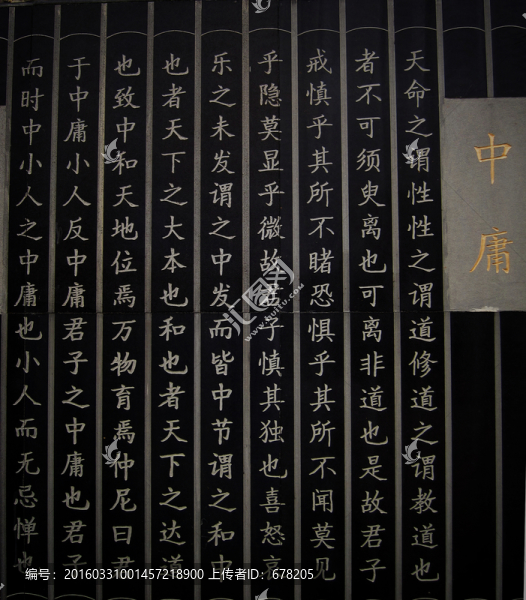 中庸
天命之谓性性之谓道修道之谓教道也
者不可须臾离也可离非道也是故君子
戒慎乎其所不睹恐惧乎其所不闻莫见
乎隐莫显乎微故君子慎其独也喜怒哀
乐之未发谓之中发而皆中节谓之和中
也者天下之大本也和也者天下之达道
也致中和天地位焉万物育焉仲尼曰君
于中庸小人反中庸君子之中庸也君子
而时中小人之中庸也小人而无忌惮也
汇图网
www.huitu.com
编号：20160331001457218900 上传者ID：678205